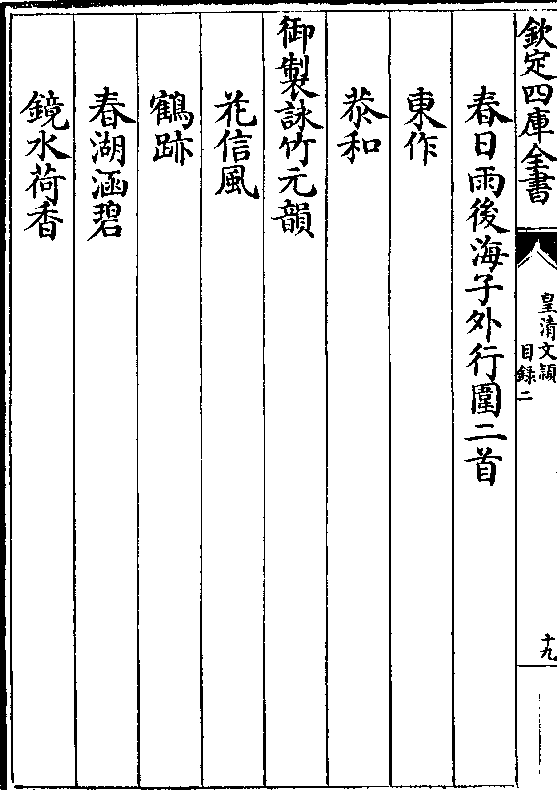 欽定四庫全書
皇清文穎
目録二
十九
春日雨後海子外行圍二首
東作
恭和
御製詠竹元韻
花信風
鶴跡
春湖涵碧
鏡水荷香